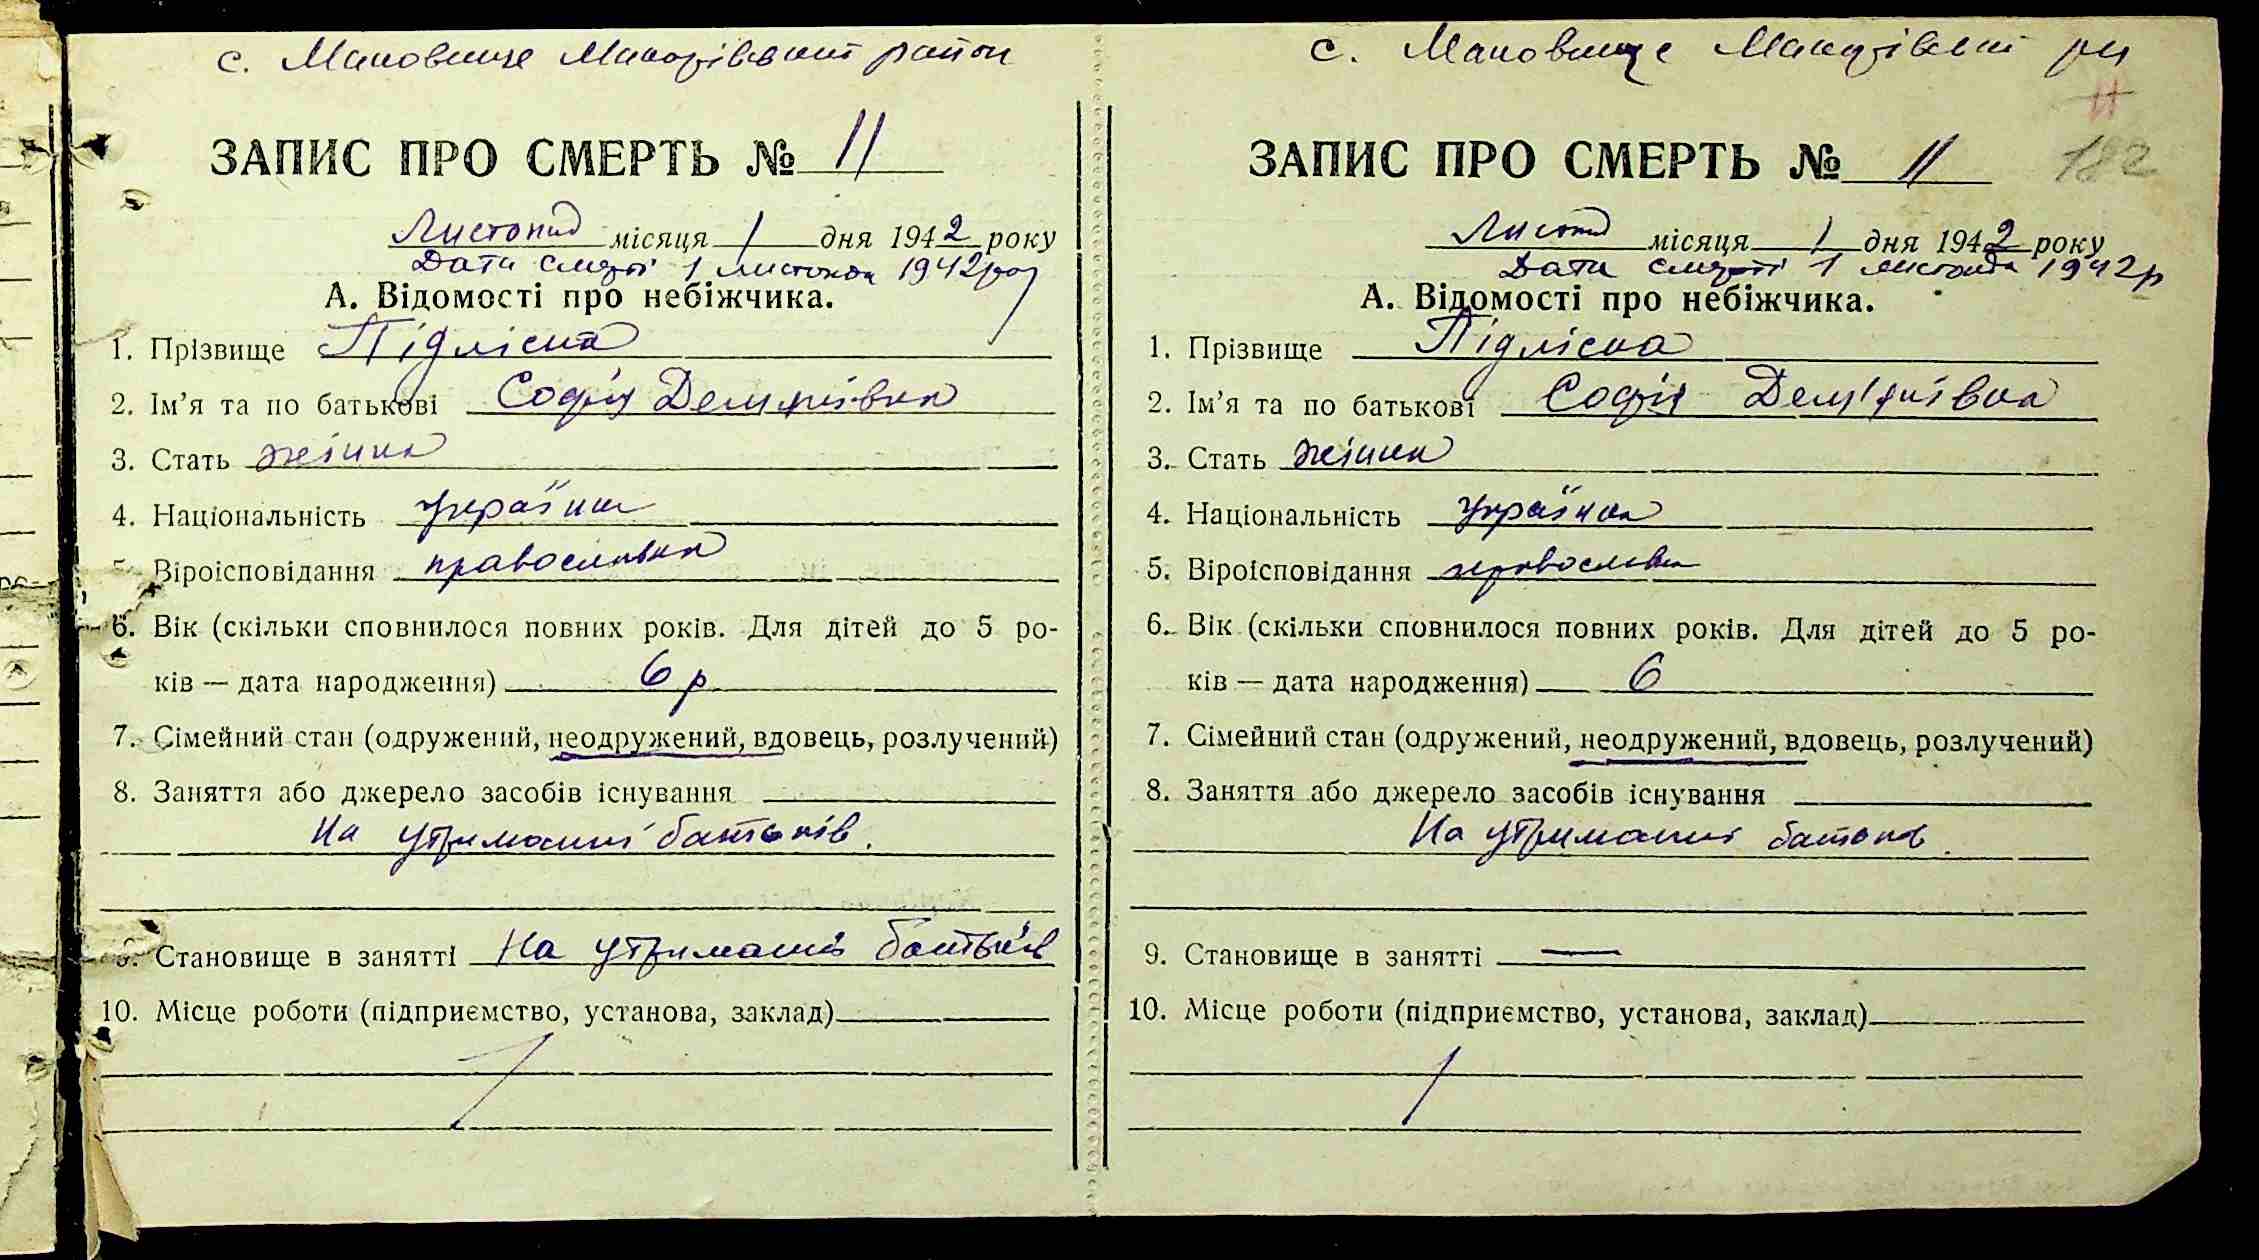 с. Маковище Макарівський район
ЗАПИС ПРО СМЕРТЬ № 11
Листопад місяця 1 дня 1942 року
Дата смерті 1 листопада 1942 року
А. Відомості про небіжчика.
1. Прізвище Підлісна
2. Ім’я та по батькові Софія Дем'янівна
3. Стать жінка
4. Національність українка
5. Віроісповідання православна
6. Вік (скільки сповнилося повних років. Для дітей до 5 ро-
ків — дата народження) 6 р
7. Сімейний стан (одружений, неодружений, вдовець, розлучений)
8. Заняття або джерело засобів існування
На утриманні батьків.
9. Становище в занятті На утриманні батьків
10. Місце роботи (підприємство, установа, заклад)
с. Маковище Макарівський рн
11
182
ЗАПИС ПРО СМЕРТЬ № 11
Листопад місяця 1 дня 1942 року
Дата смерті 1 листопада 1942 р
А. Відомості про небіжчика.
1. Прізвище Підлісна
2. Ім’я та по батькові Софія Дем'янівна
3. Стать жінка
4. Національність Українка
5. Віроісповідання православна
6. Вік (скільки сповнилося повних років. Для дітей до 5 ро-
ків — дата народження) 6
7. Сімейний стан (одружений, неодружений, вдовець, розлучений)
8. Заняття або джерело засобів існування
На утриманні батьків.
9. Становище в занятті —
10. Місце роботи (підприємство, установа, заклад)